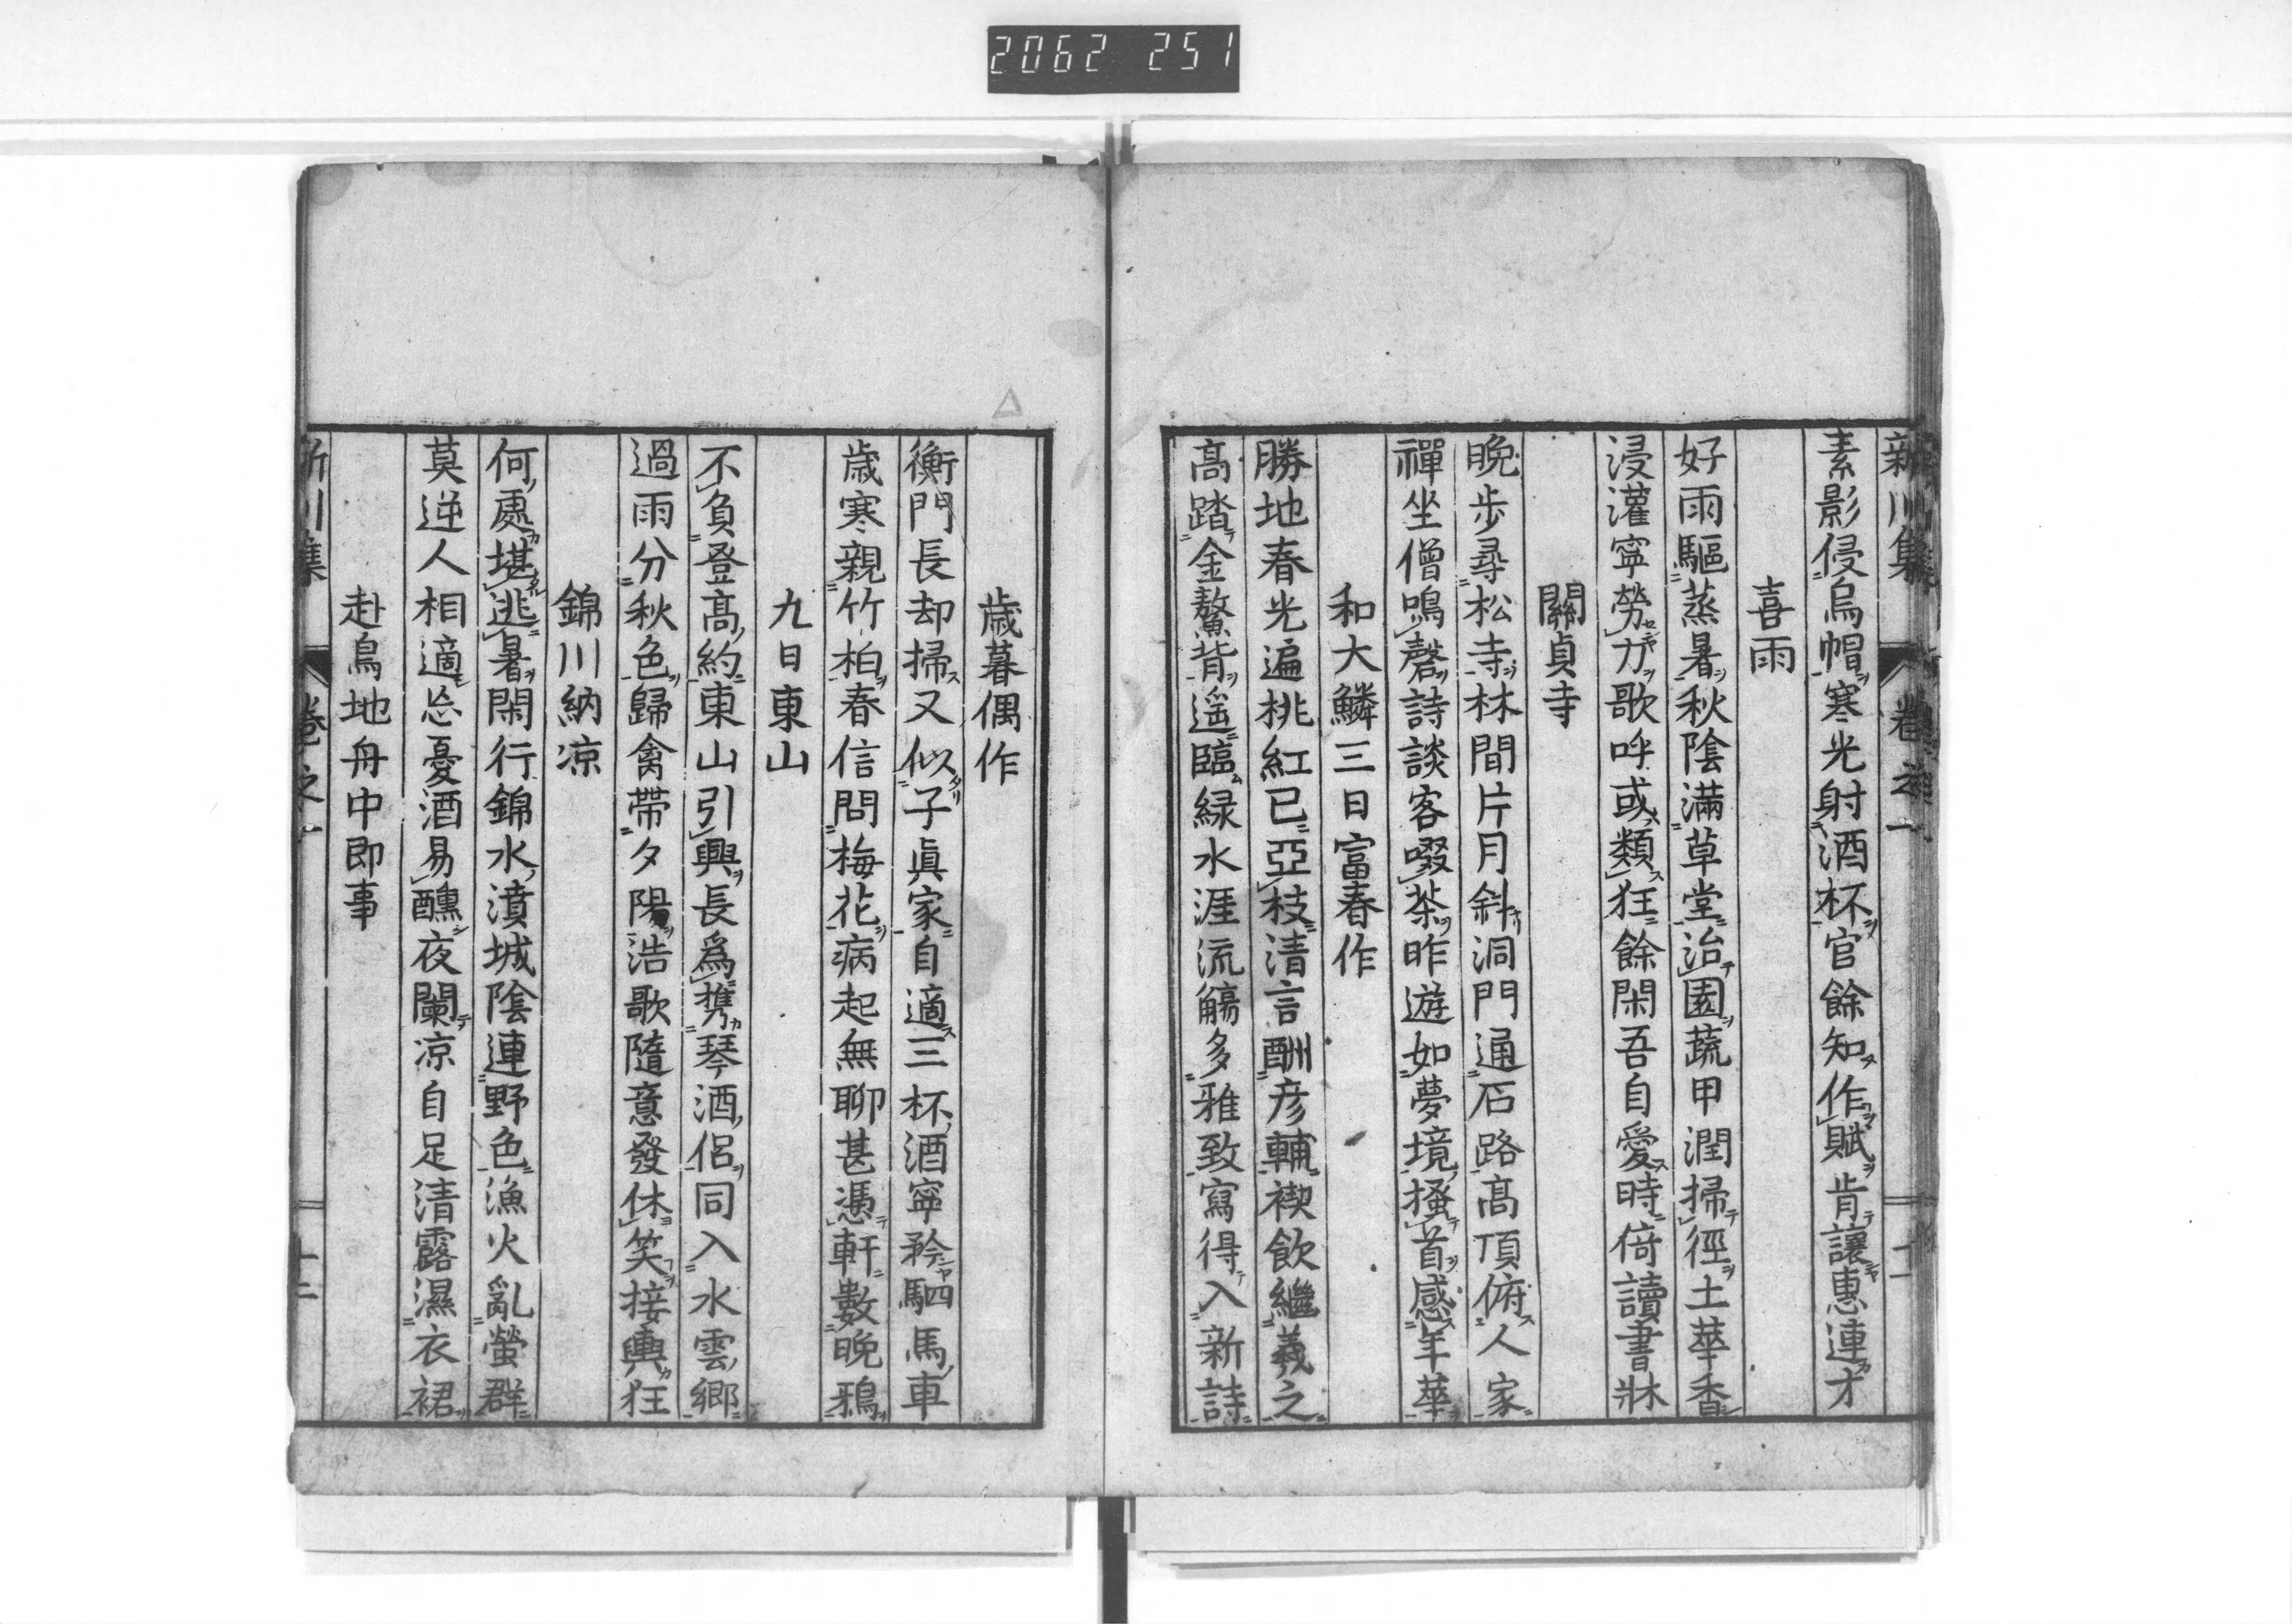 2062 251
新川集 卷之一
素影侵烏帽寒光射酒杯官餘知作賦肯讓惠連才
喜雨
好雨驅蒸暑秋陰滿草堂治園蔬甲潤掃徑土華香
浸灌寧勞力歌呼或類狂餘閑吾自愛時倚讀書牀
關貞寺
晩步尋松寺林間片月斜洞門通石路高頂俯人家
禪坐僧鳴磬詩談客啜茶昨遊如夢境搔首感年華
和大鱗三日富春作
勝地春光遍桃紅已亞枝清言酬彦輔禊飲繼羲之
高踏金鰲背遥臨緑水涯流觴多雅致寫得入新詩
歳暮偶作
衡門長却掃又似子眞家自適三杯酒寧矜駟馬車
歳寒親竹柏春信問梅花病起無聊甚憑軒數晩鴉
九日東山
不負登高約東山引興長爲携琴酒侣同入水雲鄉
過雨分秋色歸禽帶夕陽浩歌隨意發休笑接輿狂
錦川納凉
何處堪逃暑閑行錦水濆城陰連野色漁火亂螢群
莫逆人相適忘憂酒易醺夜闌凉自足清露濕衣裙
赴鳥地舟中即事
新川集 卷之一 十二